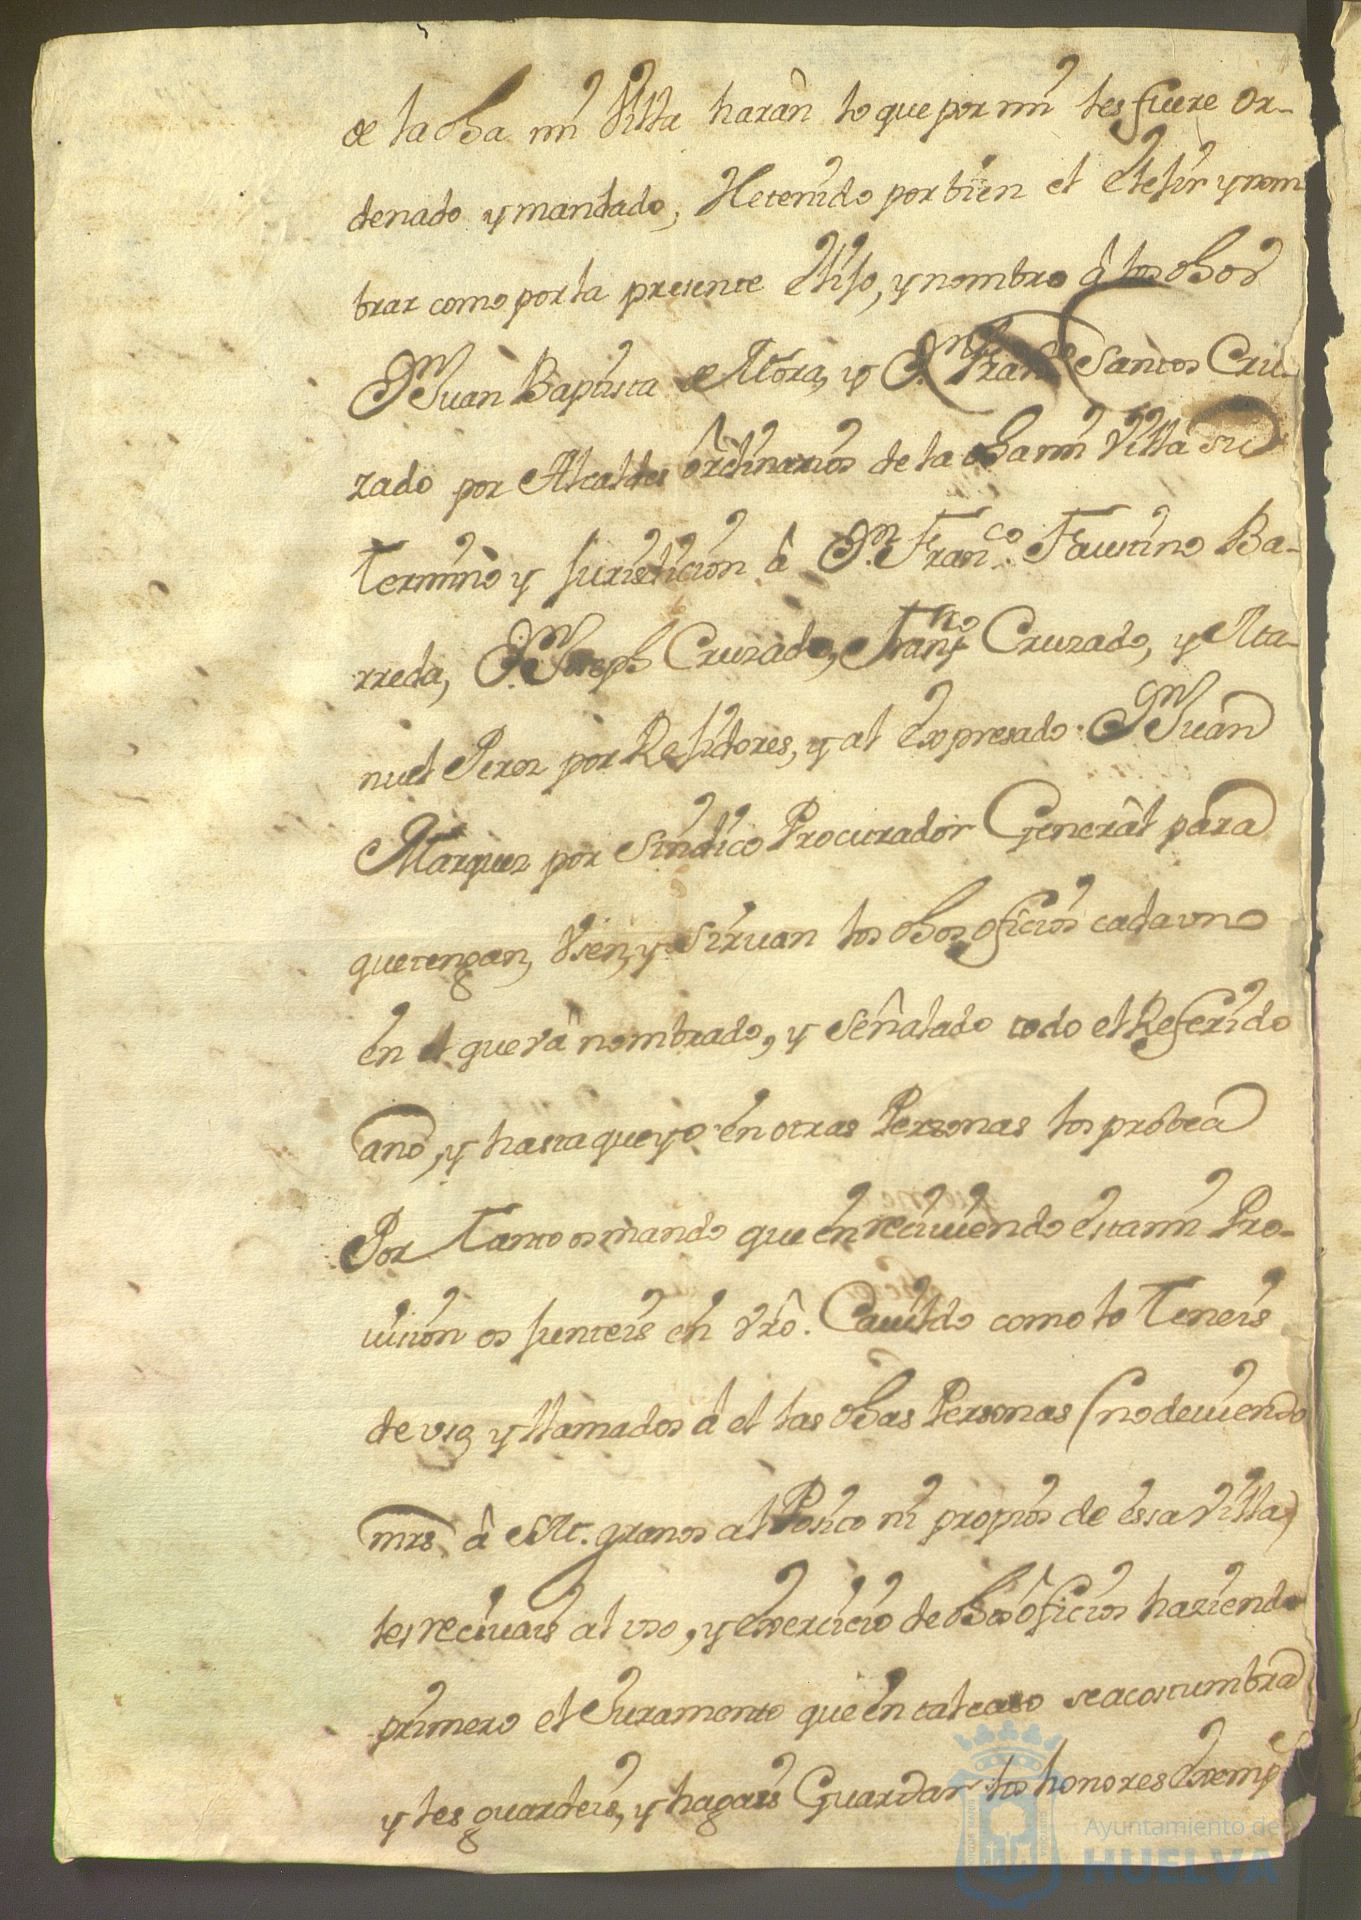 de la dha mi Villa haràn lo que por mi les fuere or-
denado y mandado, He tenido por bien el elejir y nom
brar como por la presente elijo, y nombro â los dhos
Dn Juan Baptista de Mora, y Dn Franco Santos Cru-
zado por Alcaldes ôrdinarios de la dha mi Villa su
Termino y jurisdicion â Dn. Franco. Faustino Ba-
rreda, Dn. Joseph Cruzado, Franco Cruzado, y Ma-
nuel Perez por Rejidores, y al expresado Dn Juan
Marquez por Sindico Procurador Generâl para
que tengan, Vsen, y Siruan los dhos oficios cada vno
en el que và nombrado, y señalado todo el Referido
año, y hasta que yo en otras Personas los probea
Por Tanto os mando que en reciuiendo esta mi Pro-
uision os junteis en Vrô. Cauildo como lo Teneis
de vso, y llamados â el las dhas Personas (no deuiendo
mrs. â S.M. granos al Posito ni propios de essa Villa)
les reciuais al vso, y exercicio de dhos ôficios haziendo
primero el Juramento que en tal caso se acostumbra
y les guardeis, y hagais Guardar los honores exemp
Ayuntamiento de
HUELVA